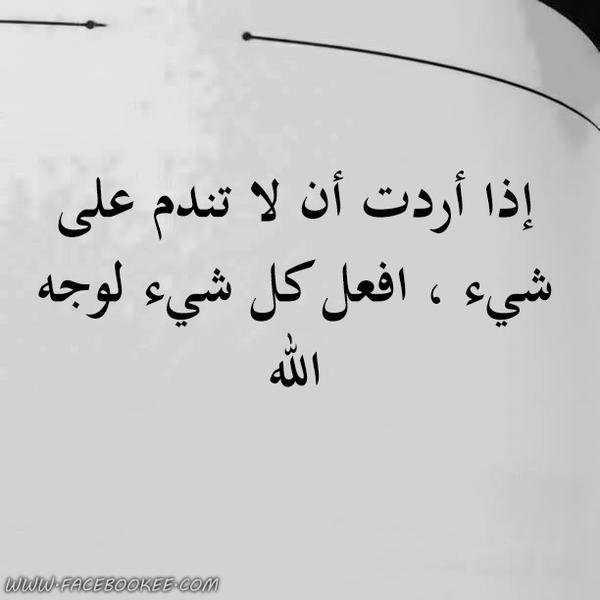 إذا أردت أن لا تندم على
شيء ، افعل كل شيء لوجه
الله
WWW.FACEBOOKEE.COM